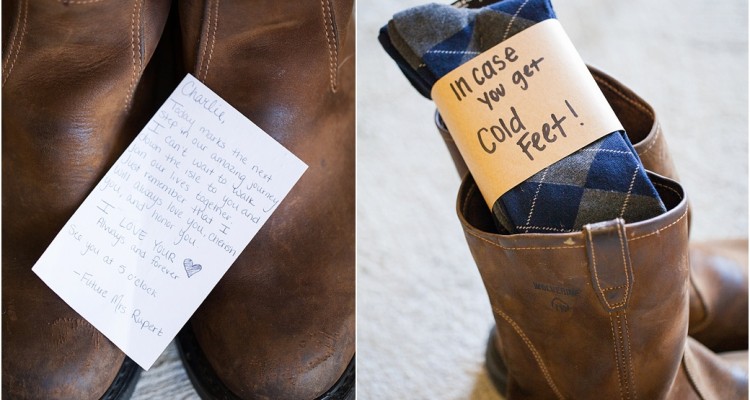 Charlie,
Today marks the next
step in our amazing journey
I can't wait to walk
down the isle to you and
join our lives together.
Just remember that I
will always love you, cherish
you, and honor you.
I LOVE YOU!
Always and forever
See you at 5 o'clock
-Future Mrs Rupert
In case
you get
Cold
Feet!
WOLVERINE